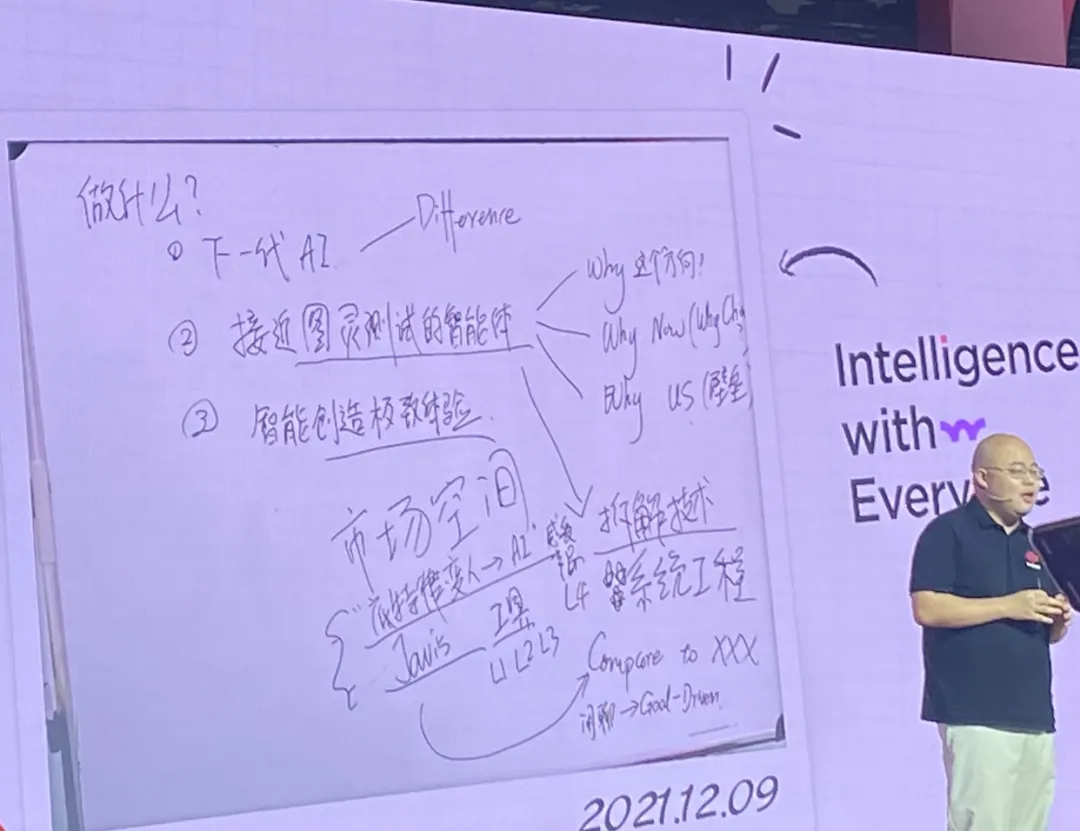 做什么?
① 下一代AI
Difference
② 接近图灵测试的智能体
Why 这个方向!
Why Now (Why Ch
Why US (壁垒)
③ 智能创造极致体验
市场空间
底特律变人→AI
Javis
工具
L1 L2 L3
L4
拆解技术
系统工程
Compare to XXX
闲聊→Goal-Driven
2021.12.09
Intelligence
with
Every